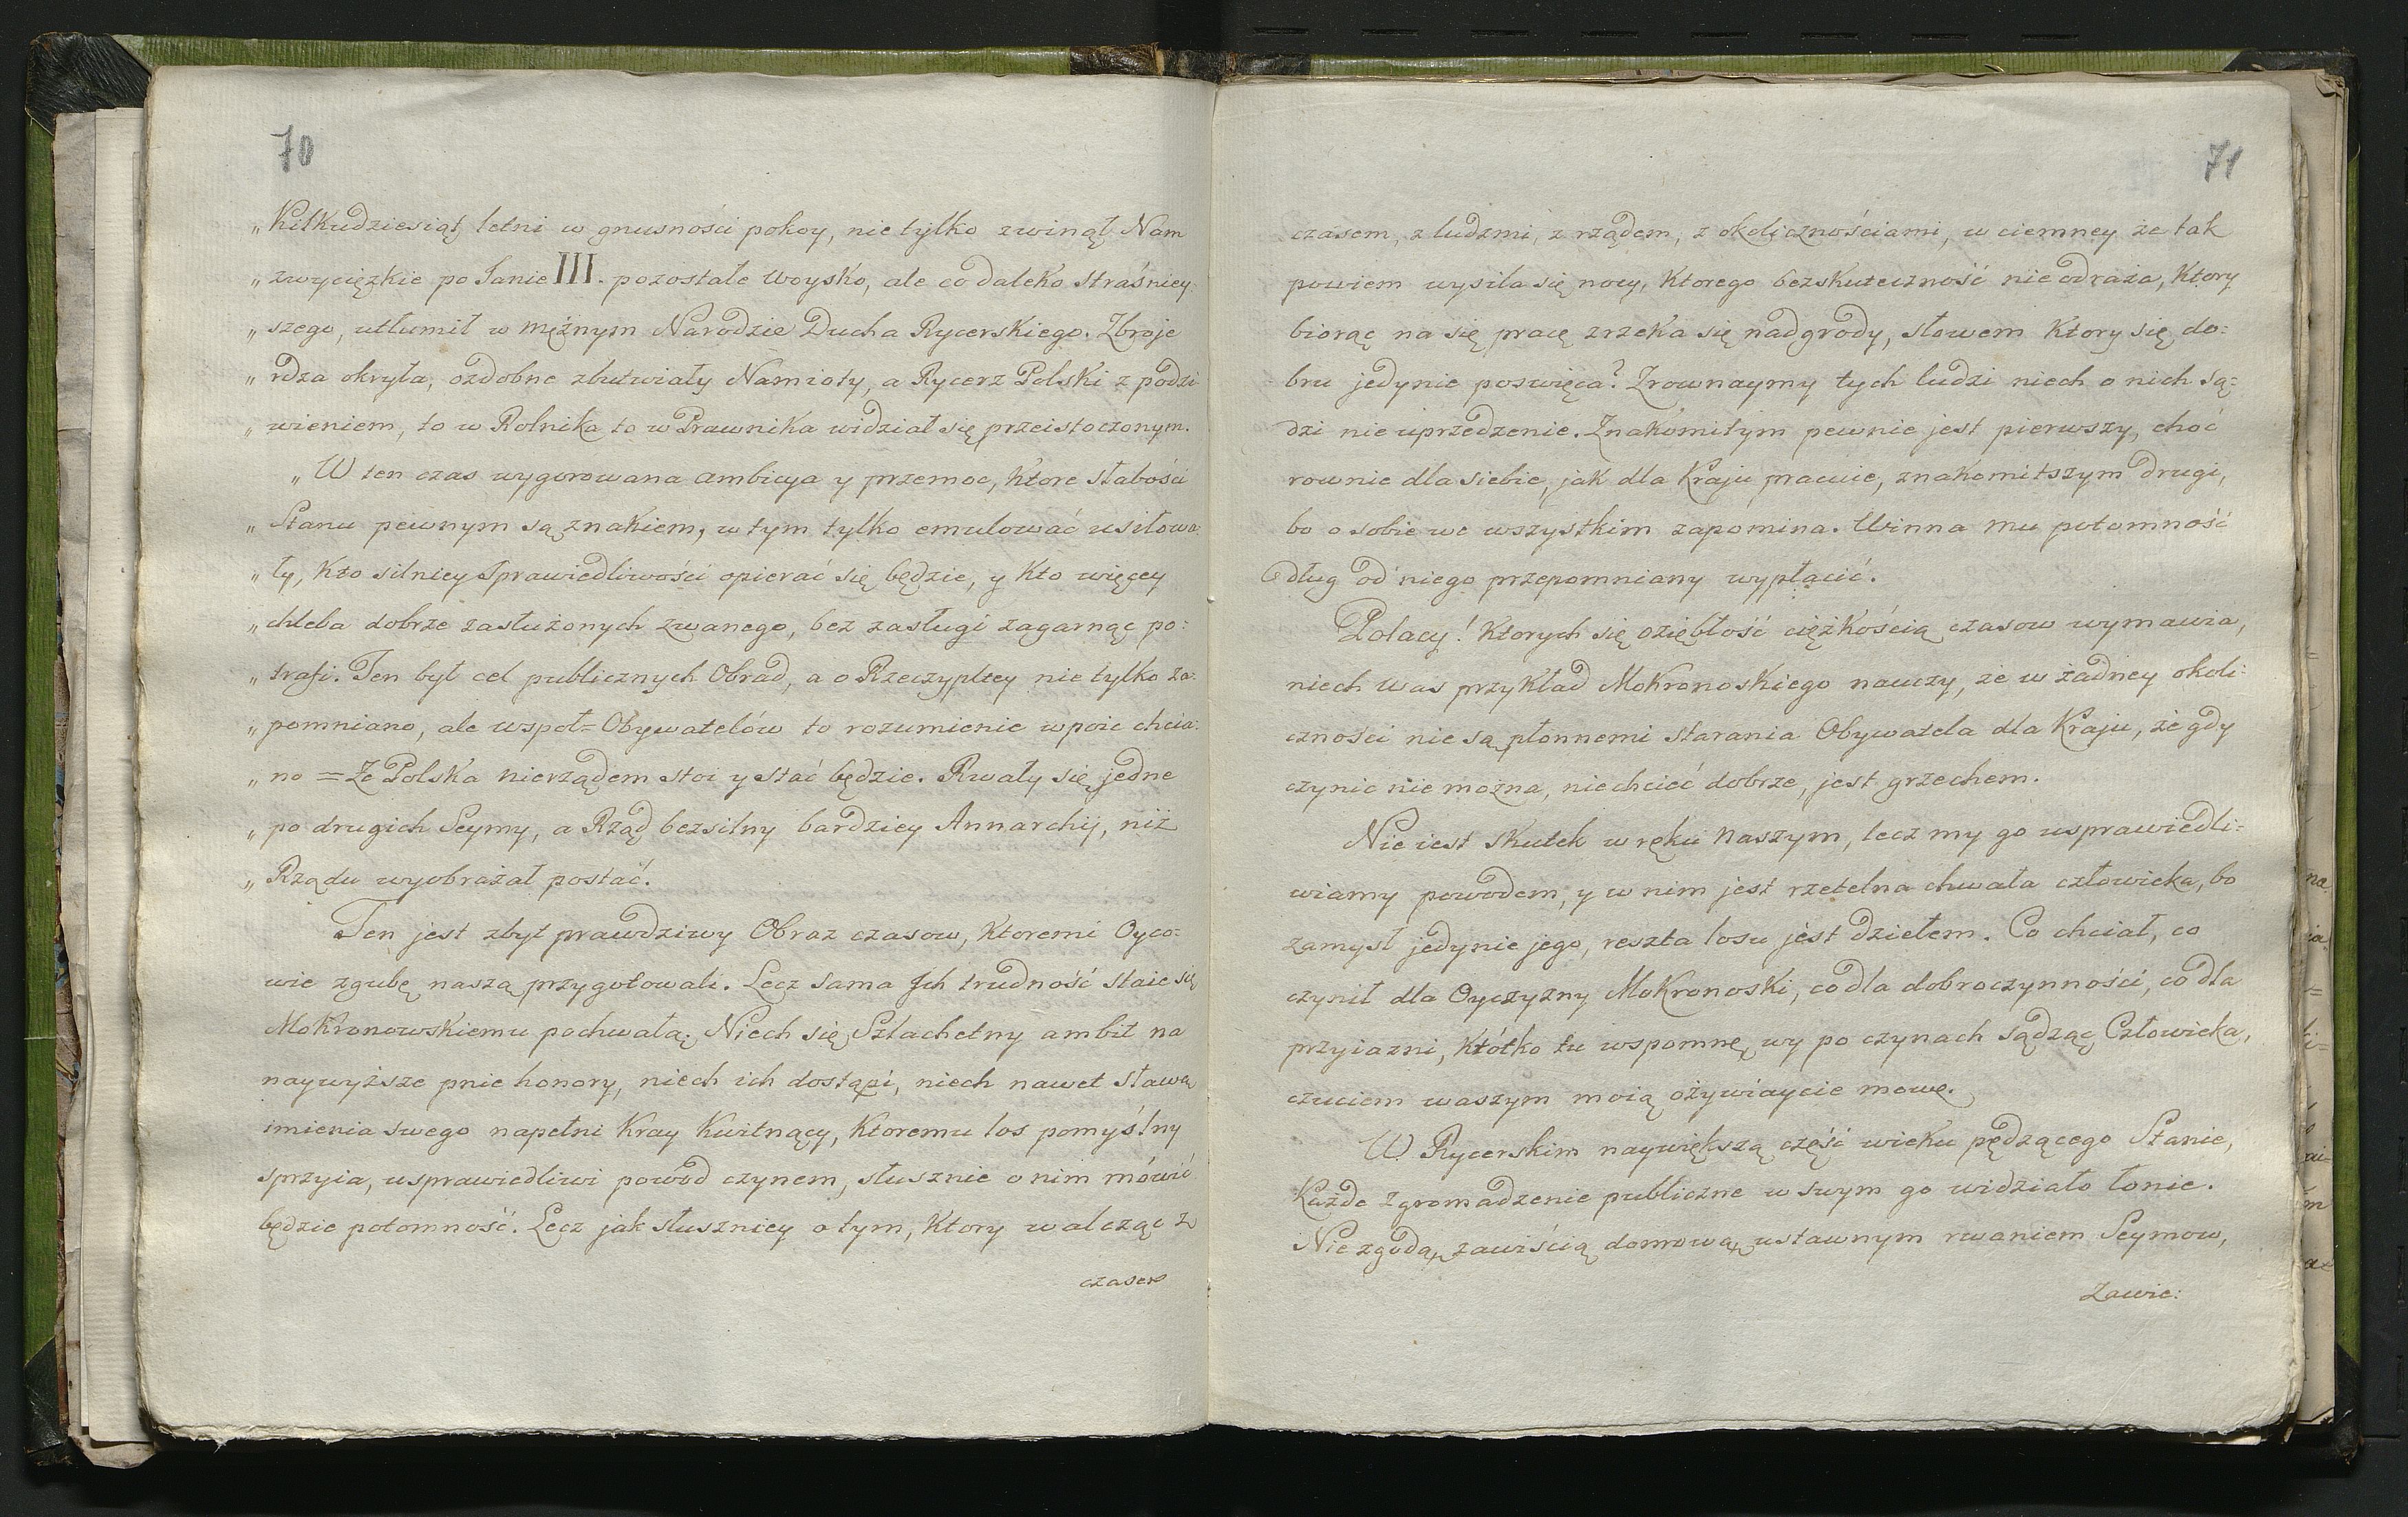 70
„ Kilkudziesiąt letni w gnusności pokoy, nie tylko zwinął Nam
„ zwycięzkie po Janie III. pozostałe woysko, ale co daleko straśniey:
„ szego, utłumił w mężnym Narodzie Ducha Rycerskiego. Zbroje
„ rdza okryła, ozdobne zbutwiały Namioty, a Rycerz Polski z podzi
„ wieniem, to w Rolnika to w Prawnika widział się przeistoczonym.
„ W ten czas wygorowana ambicya y przemoc, ktore słabości
„ Stanu pewnym są znakiem, w tym tylko emulować usiłowa
„ ły, kto silniey sprawiedliwości opierać się będzie, y kto więcey
„ chleba dobrze zasłużonych zwanego, bez zasługi zagarnąc po:
„ trafi. Ten był cel publicznych Obrad, a o Rzeczypltey nie tylko za:
„ pomniano, ale wspoł=Obywatelów to rozumienie wpoic chcia:
„ no = Ze Polska nierządem stoi y stać będzie. Rwały się jedne
„ po drugich Seymy, a Rząd bezsilny bardziey Annarchij, niż
„ Rządu wyobrażał postać.
Ten jest zbyt prawdziwy Obraz czasow, ktoremi Oyco=
wie zgubę naszą przygotowali. Lecz sama Jch trudność staie się
Mokronowskiemu pochwałą; Niech się Szlachetny ambit na
naywyższe pnie honory, niech ich dostąpi, niech nawet sławą
imienia swego napełni Kray kwitnący, ktoremu los pomyślny
sprzyia, usprawiedliwi powod czynem, słusznie o nim mówić
będzie potomność. Lecz jak słuszniey o tym, ktory walcząc z
czasem
71
czasem, z ludzmi, z rządem, z okolicznościami, w ciemney że tak
powiem wysila się nocy, ktorego bezskuteczność nie odraża, ktory
biorąc na się pracę zrzeka się nadgrody, słowem ktory się do:
bru jedynie poswięca? Zrownaymy tych ludzi niech o nich są:
dzi nieuprzedzenie. Znakomitym pewnie jest pierwszy, choć
rownie dla siebie, jak dla Kraju pracuie, znakomitszym drugi,
bo o sobie we wszystkim zapomina. Winna mu potomność
dług od niego przepomniany wypłacić.
Polacy! ktorych się oziębłość ciężkością czasow wymawia,
niech was przykład Mokronoskiego nauczy, że w żadney okoli:
czności nie są płonnemi starania Obywatela dla Kraju, że gdy
czynic nie można, niechcieć dobrze, jest grzechem.
Nie iest skutek w ręku naszym, lecz my go usprawiedli=
wiamy powodem, y w nim jest rzetelna chwała człowieka, bo
zamysł jedynie jego, reszta losu jest dziełem. Co chciał, co
czynił dla Oyczyzny Mokronoski, co dla dobroczynności, co dla
przyiazni, krótko tu wspomnę, wy po czynach sądząc Człowieka,
czuciem waszym moią ożywiaycie mowę.
W Rycerskim naywiększą część wieku pędzącego Stanie,
Każde zgromadzenie publiczne w swym go widziało łonie.
Niezgodą, zawiścią domową, ustawnym rwaniem Seymow,
Zawie: